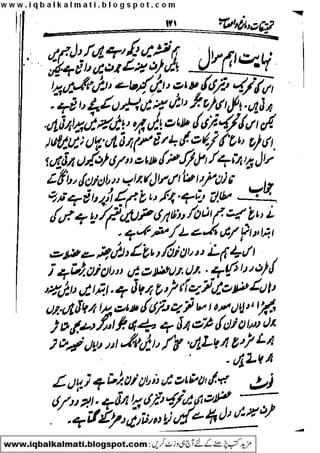 www.iqbalkalmati.blogspot.com
۱۳۱
نہایت اہم سوال
ہم نقشہ میں دیکھ رہے ہیں کہ دل جسم میں
بائیں طرف سینہ کے جوف میں واقع ہے لیکن
اس کی تحریک و تیزی کی علامات دائیں کندھا سے دائیں ٹانگ میں پیدا
ہوتی ہیں۔ بالکل اسی طرح جگر دائیں سینہ میں پسلیوں کے نیچے واقع ہے۔
لیکن اس کی تحریک و تیزی کی علامات بائیں چہرہ و بائیں سینہ میں پیدا ہوتی ہیں
اسی طرح دماغ کی تحریکات بھی معلوم ہوتی ہیں۔ یہاں
سوال پیدا ہوتا ہے کہ اصل محرک عضو کی علامات دوسری طرف کیوں ہوتی ہیں؟
جواب
قانون مفرد اعضا اس سوال کا جواب دوران خون کی روانگی کے
مطابق دیتا ہے۔ چونکہ دماغ جسم کے اوپر واقع ہے قدرت
نے دماغ سمیت جسم انسان کو دو ظاہری حصوں میں تقسیم کر دیا ہے جس کی
ابتدا و انتہا سر میں سے لے کر مقعد تک ہے۔
اس لئے ہم نے دوران خون کو دماغ کے دائیں حصے سے عضلات
کی طرف رواں دکھایا ہے۔ جوں جوں عضلات میں دوران خون بڑھتا ہے تو
وہاں کے عضلات میں تقویت آنا شروع ہو جاتی ہے۔ ابتدا میں دائیں سینہ
پھیپھڑا، دایاں معدہ امعا تقویت و تیزی کی علامات پیدا ہو جاتی ہیں۔ جوں
جوں دوران خون کی شدت ہوتی ہے ویسے ہی جگر اور گردے بھی متاثر
ہونے شروع ہو جاتے ہیں۔ حتیٰ کہ دائیں ٹانگ اور دایاں خصیہ متاثر
ہو جاتے ہیں۔
نوٹ
جب بھی ان مقامات میں دوران خون بڑھتا ہے تو یہاں کے
عضلات ہی میں تحریک و تیزی پیدا ہوتی ہے۔ البتہ دوسری
طرف سینہ میں دل پہلے سے کہیں زیادہ رفتار میں دھڑکنے لگتا ہے۔
مزید کتب پڑھنے کے لئے آج ہی وزٹ کریں : www.iqbalkalmati.blogspot.com